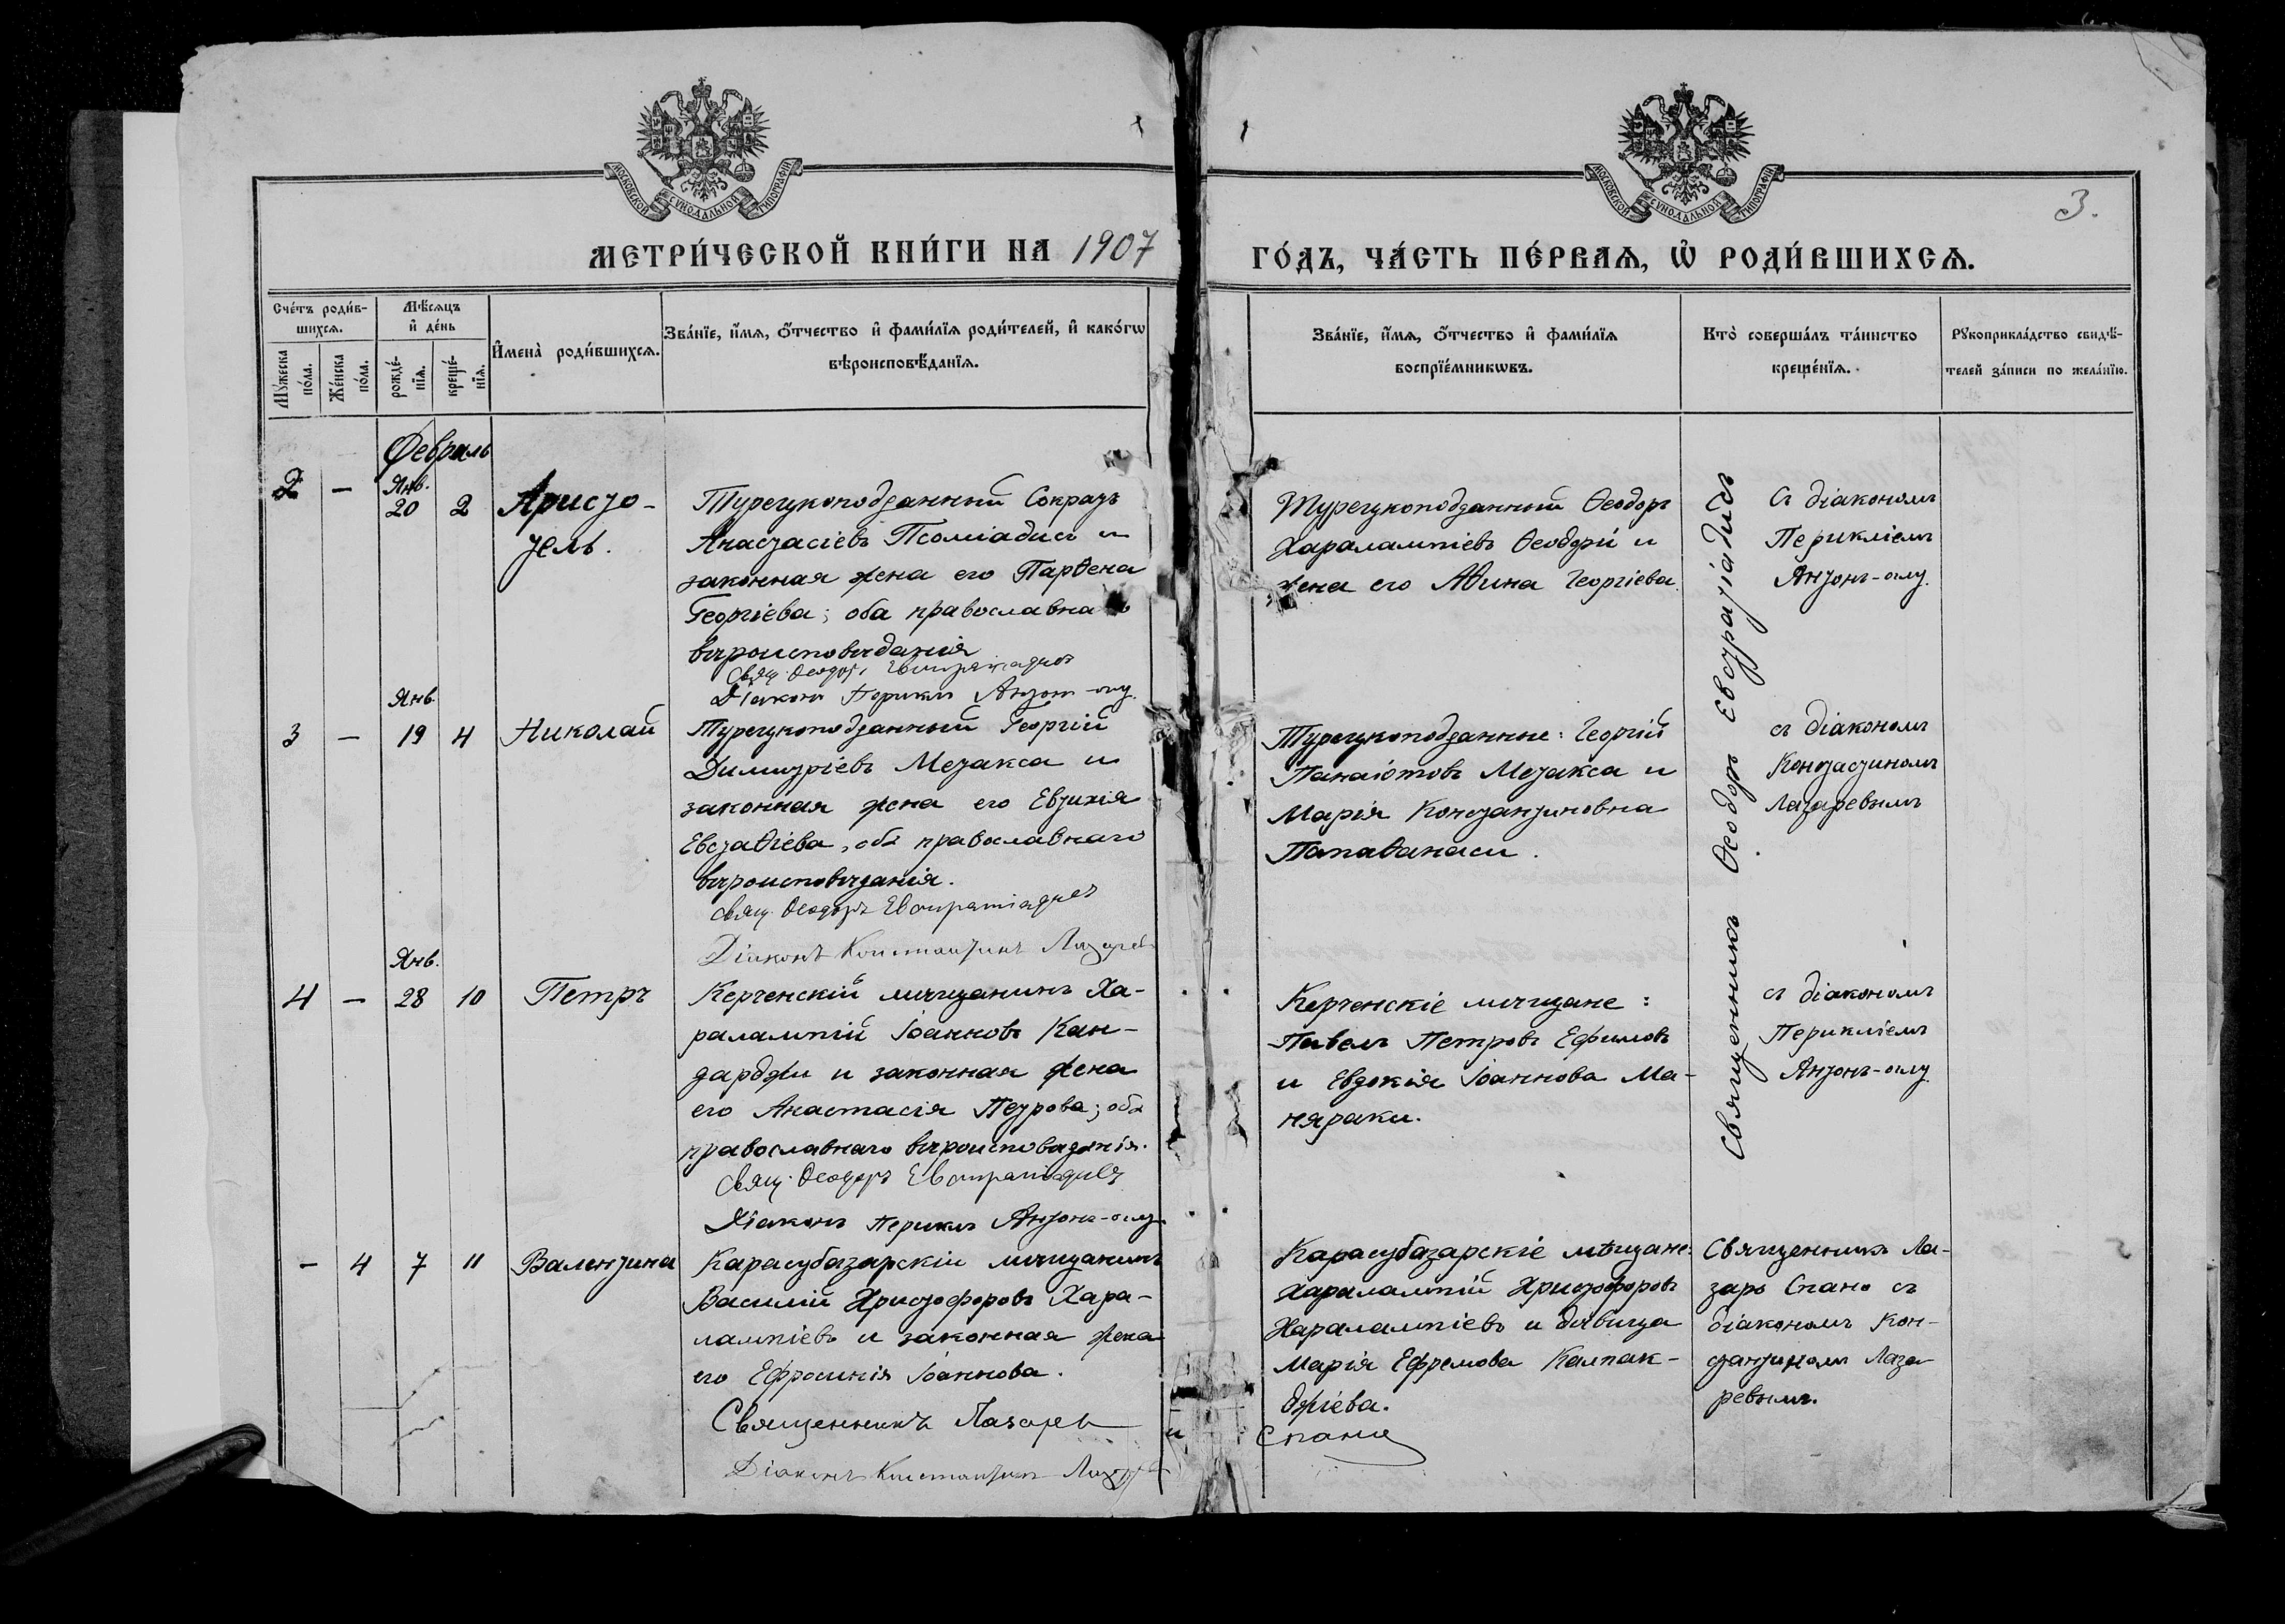 МОСКОВСКОЙ СѴНОДАЛЬНОЙ ТИПОГРАФІИ
МОСКОВСКОЙ СѴНОДАЛЬНОЙ ТИПОГРАФІИ
3.
МЕТРИ́ЧЕСКОЙ КНИ́ГИ НА 1907
ГО́ДЪ, ЧА́СТЬ ПЕ́РВАѦ, Ѡ҆ РОДИ́ВШИХСѦ.
Сче́тъ роди́в-
шихсѧ.
Мꙋ́жеска
по́ла.
Же́нска
по́ла.
Мѣ́сѧцъ
и҆ де́нь
рожде́-
нїѧ.
креще́-
нїѧ.
И҆мена̀ роди́вшихсѧ.
Зва́нїе, и҆́мѧ, ѻ҆́тчество и҆ фами́лїѧ роди́телей, и҆ како́гѡ
вѣроисповѣ́данїѧ.
Зва́нїе, и҆́мѧ, ѻ҆́тчество и҆ фами́лїѧ
воспрїе́мникѡвъ.
Кто̀ соверша́лъ та́инство
креще́нїѧ.
Рꙋкоприкла́дство свидѣ́-
телей за́писи по жела́нїю.
Февраль
2
—
Янв.
20
2
Аристо-
тель.
Турецкоподданный Сократъ
Анастасіевъ Псоміадисъ и
законная жена его Парѳена
Георгіева; оба православнаго
вѣроисповѣданія
Свящ. Ѳеодоръ Евстратіадисъ
Діаконъ Периклъ Антонъ-оглу
Турецкоподданный Ѳеодоръ
Харалампіевъ Ѳеодори и
жена его Аѳина Георгіева.
Священникъ Ѳеодоръ Евстратіадисъ
Съ діакономъ
Перикліемъ
Антонъ-оглу.
Янв.
3
—
19
4
Николай
Турецкоподданный Георгій
Димитріевъ Метакса и
законная жена его Евтихія
Евстаѳіева, оба православнаго
вѣроисповѣданія.
Свящ. Ѳеодоръ Евстратіадисъ
Діаконъ Константинъ Лазарев
Турецкоподданные: Георгій
Панаіотовъ Метакса и
Марія Константиновна
Папаѳанаси.
съ діакономъ
Констастиномъ
Лазаревымъ
Янв.
4
—
28
10
Петръ
Керченскій мѣщанинъ Ха-
ралампій Іоанновъ Кан-
дарджи и законная жена
его Анастасія Петрова; оба
православнаго вѣроисповѣданія.
Свящ. Ѳеодоръ Евстратіадисъ
Діаконъ Периклъ Антонъ-оглу
Керченскіе мѣщане:
Павелъ Петровъ Ефимовъ
и Евдокія Іоаннова Ма-
няраки.
съ діакономъ
Перикліемъ
Антонъ-оглу.
—
4
7
11
Валентина
Карасубазарскій мѣщанинъ
Василій Христофоровъ Хара-
лампіевъ и законная жена
его Ефросинія Іоаннова.
Священникъ Лазарь
Діаконъ Константинъ Лазарев
Карасубазарскіе мѣщане:
Харалампій Христофоровъ
Харалампіевъ и дѣвица
Марія Ефремова Калпак-
джіева.
Спано
Священникъ Ла-
зарь Спано съ
діакономъ Кон-
стантиномъ Лаза-
ревымъ.